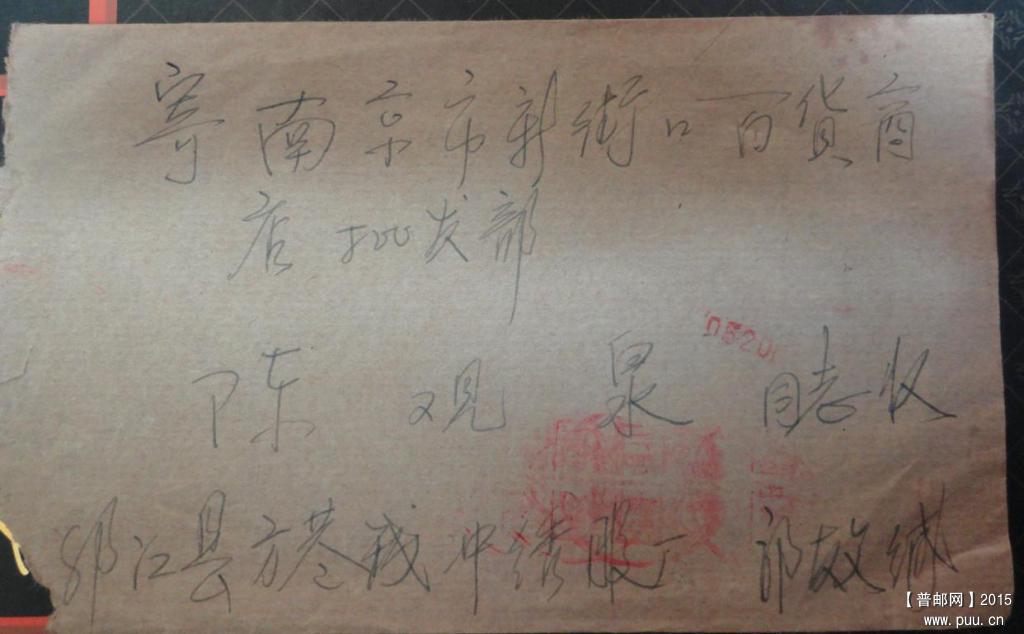 寄南京市新街口百货商
店批发部
0520
陈观泉 同志收
邗江县方巷 冲绣服厂 缄
【普邮网】2015
www.puu.cn